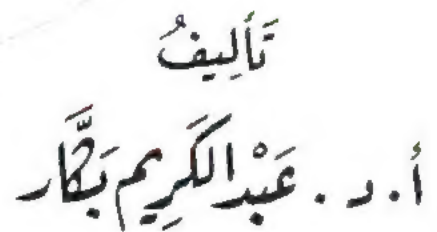 تَأْلِيفُ
أ.د. عَبْدالكَرِيم بَكَّار